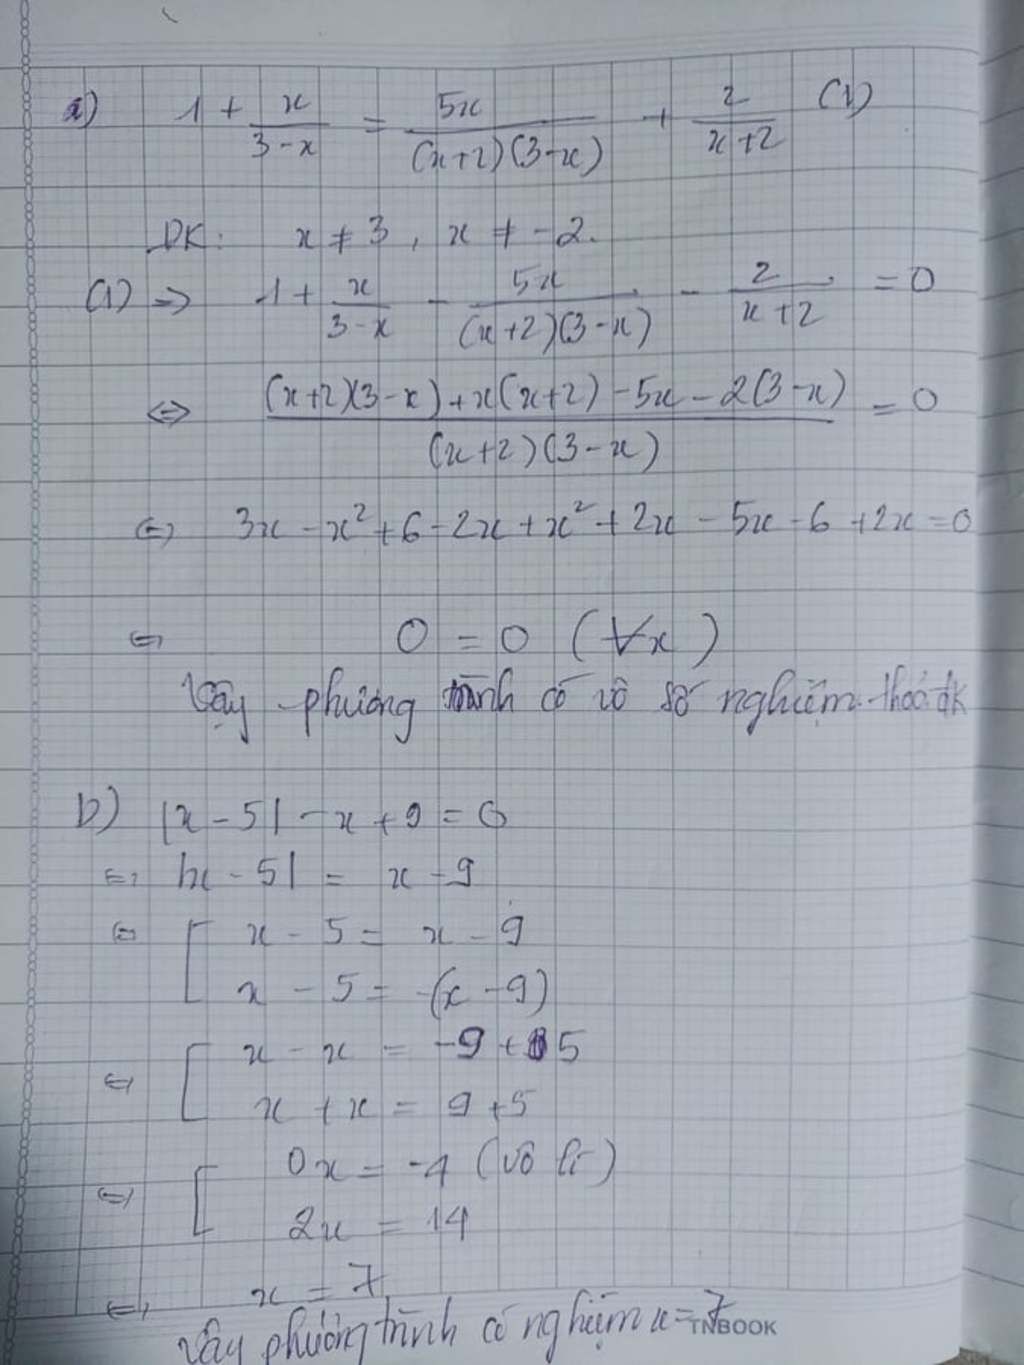 a) 1 + x/(3-x) = 5x/((x+2)(3-x)) + 2/(x+2) (1)
ĐK: x ≠ 3, x ≠ -2.
(1) => 1 + x/(3-x) - 5x/((x+2)(3-x)) - 2/(x+2) = 0
<=> ((x+2)(3-x) + x(x+2) - 5x - 2(3-x))/((x+2)(3-x)) = 0
<=> 3x - x² + 6 - 2x + x² + 2x - 5x - 6 + 2x = 0
<=> 0 = 0 (∀x)
Vậy phương trình có vô số nghiệm thoả đk
b) |x - 5| - x + 9 = 0
<=> |x - 5| = x - 9
<=> [ x - 5 = x - 9
x - 5 = -(x - 9)
<=> [ x - x = -9 + 5
x + x = 9 + 5
<=> [ 0x = -4 (vô lí)
2x = 14
<=> x = 7
Vậy phương trình có nghiệm x = 7
TNBOOK